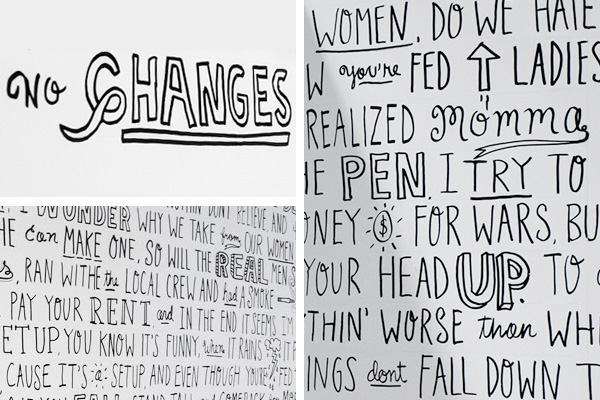 NO CHANGES
I WONDER WHY WE TAKE from OUR WOMEN
HE can MAKE ONE, SO WILL THE REAL MEN
RAN WITH the LOCAL CREW AND had A SMOKE
PAY YOUR RENT, and IN THE END IT SEEMS I'M
ET UP, YOU KNOW IT'S FUNNY, when IT RAINS IT
CAUSE IT'S a SETUP, AND EVEN THOUGH YOU'RE FED
WOMEN, DO WE HATE
W you're FED ↑ LADIES
REALIZED Momma
HE PEN, I TRY TO
ONEY $ FOR WARS, BU
YOUR HEAD UP. TO
THIN' WORSE than WH
INGS dont FALL DOWN T